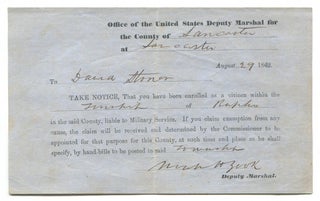 Office of the United States Deputy Marshal for
the County of Lancaster
at Lancaster
August 29 1862.
To David Stoner
TAKE NOTICE, That you have been enrolled as a citizen within the
Township of Rapho
in the said County, liable to Military Service. If you claim exemption from any
cause, the claim will be received and determined by the Commissioner to be
appointed for that purpose for this County, at such time and place as he shall
specify, by hand-bills to be posted in said Township
Deputy Marshal.